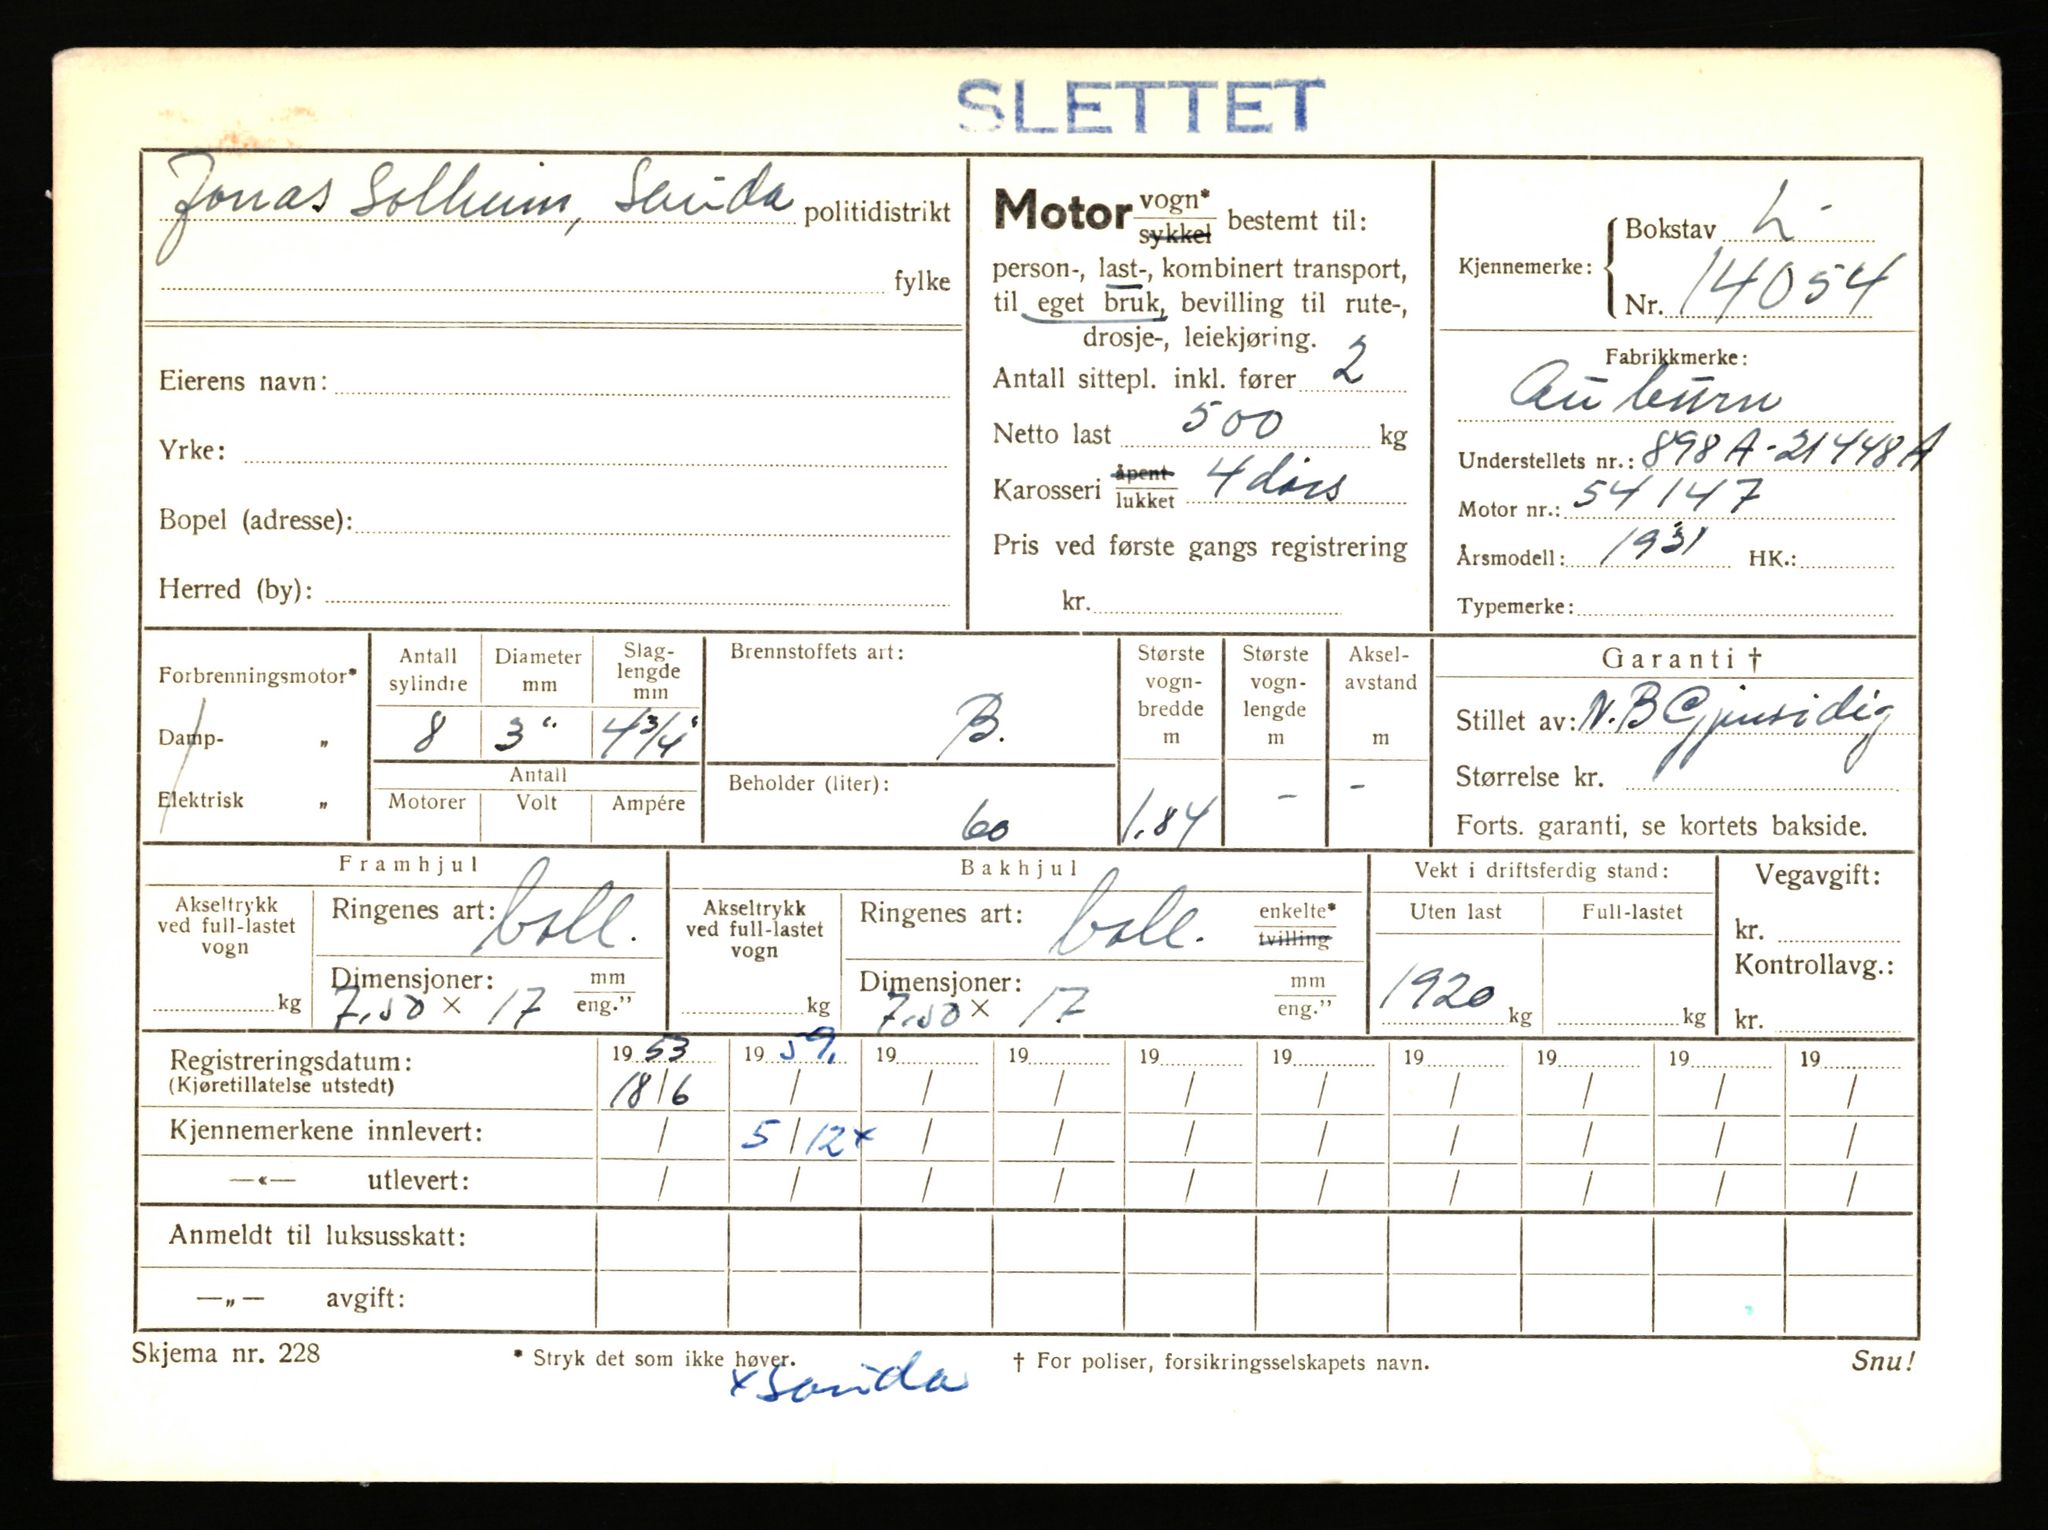 SLETTET
Jonas Solheim, Sauda politidistrikt
fylke
Eierens navn:
Yrke:
Bopel (adresse):
Herred (by):
Motor vogn* sykkel bestemt til:
person-, last-, kombinert transport,
til eget bruk, bevilling til rute-,
drosje-, leiekjøring.
Antall sittepl. inkl. fører 2
Netto last 500 kg
Karosseri åpent lukket 4 dørs
Pris ved første gangs registrering
kr.
Kjennemerke: Bokstav L-
Nr. 14054
Fabrikkmerke:
Auburn
Understellets nr.: 898 A-21448A
Motor nr.: 54147
Årsmodell: 1931 HK.:
Typemerke:
Forbrenningsmotor*
Damp- „
Elektrisk „
Antall sylindre
8
Diameter mm
3"
Slaglengde mm
4 3/4"
Antall
Motorer Volt Ampére
Brennstoffets art:
B.
Beholder (liter):
60
Største vogn-bredde m
1.84
Største vogn-lengde m
-
Aksel-avstand m
-
Garanti †
Stillet av: N.B Gjensidig
Størrelse kr.
Forts. garanti, se kortets bakside.
Framhjul
Akseltrykk ved full-lastet vogn
kg
Ringenes art: ball.
Dimensjoner: mm
7,50 × 17 eng."
Bakhjul
Akseltrykk ved full-lastet vogn
kg
Ringenes art: ball. enkelte* tvilling
Dimensjoner: mm
7,50 × 17 eng."
Vekt i driftsferdig stand:
Uten last Full-lastet
1920 kg kg
Vegavgift:
kr.
Kontrollavg.:
kr.
Registreringsdatum: 1953 1959. 19 19 19 19 19 19 19 19
(Kjøretillatelse utstedt) 18/6 / / / / / / / / /
Kjennemerkene innlevert: / 5/12× / / / / / / / /
—«— utlevert: / / / / / / / / / /
Anmeldt til luksusskatt:
—„— avgift:
Skjema nr. 228 * Stryk det som ikke høver. † For poliser, forsikringsselskapets navn. Snu!
×Sauda